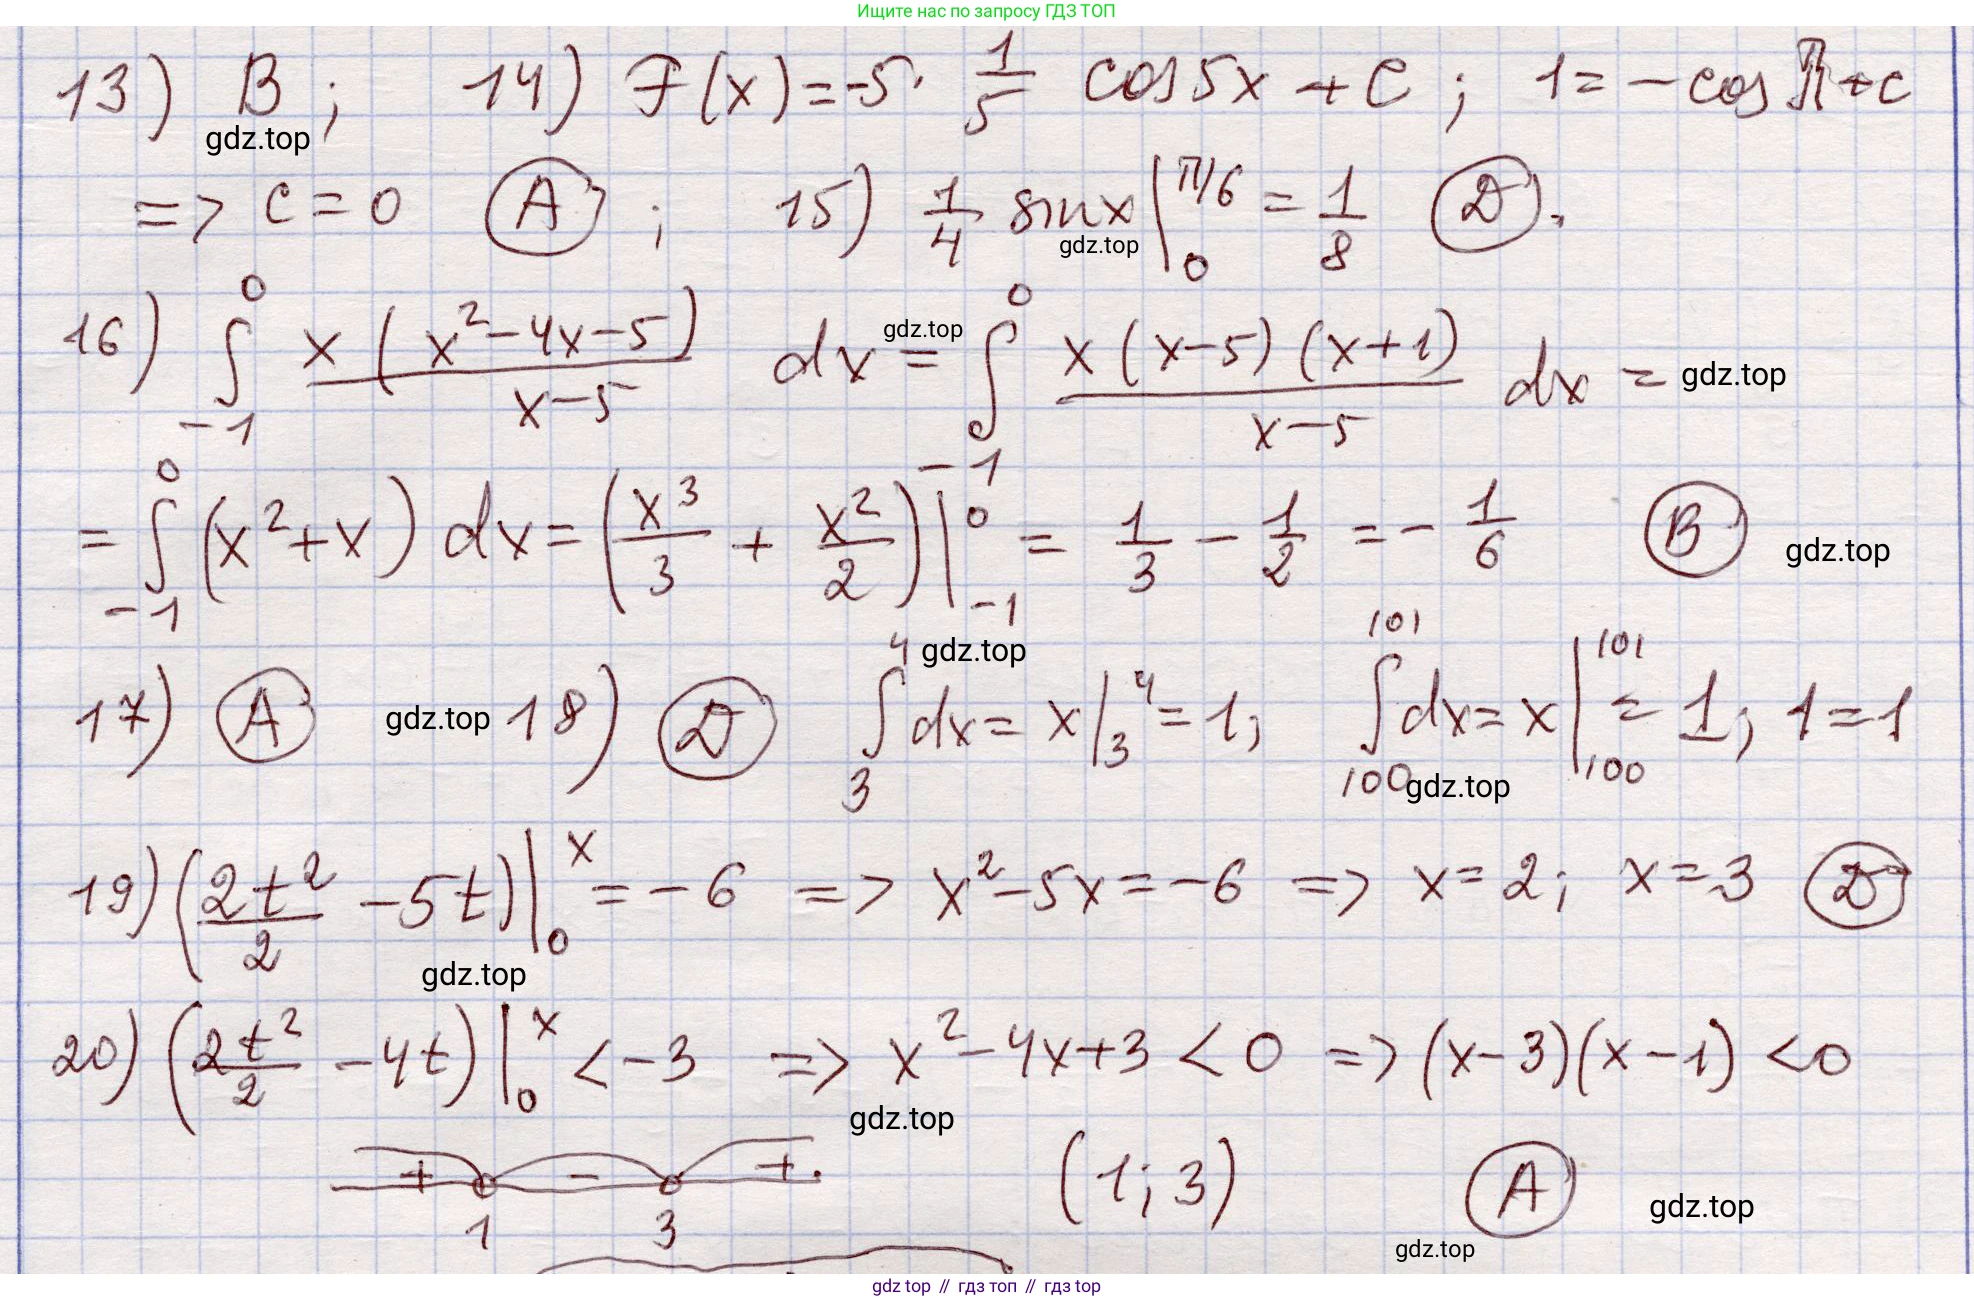 Ищите нас по запросу ГДЗ ТОП
13) B; 14) F(x) = -5 · 1/5 cos5x + C; 1 = -cos π + c
gdz.top
=> c = 0 (A); 15) 1/4 sinx |₀^π/6 = 1/8 (D).
gdz.top
16) ∫₋₁⁰ x(x² - 4x - 5)/(x - 5) dx = ∫₋₁⁰ x(x - 5)(x + 1)/(x - 5) dx =
gdz.top gdz.top
= ∫₋₁⁰ (x² + x) dx = (x³/3 + x²/2) |₋₁⁰ = 1/3 - 1/2 = - 1/6 (B)
gdz.top
gdz.top
17) (A) 18) (D) ∫₃⁴ dx = x |₃⁴ = 1; ∫₁₀₀¹⁰¹ dx = x |₁₀₀¹⁰¹ = 1; 1 = 1
gdz.top gdz.top
19) (2t²/2 - 5t) |₀ˣ = -6 => x² - 5x = -6 => x = 2; x = 3 (D)
gdz.top
20) (2t²/2 - 4t) |₀ˣ < -3 => x² - 4x + 3 < 0 => (x - 3)(x - 1) < 0
gdz.top
+ - +. (1; 3) (A)
gdz.top
1 3
gdz.top
gdz top // гдз топ // гдз top